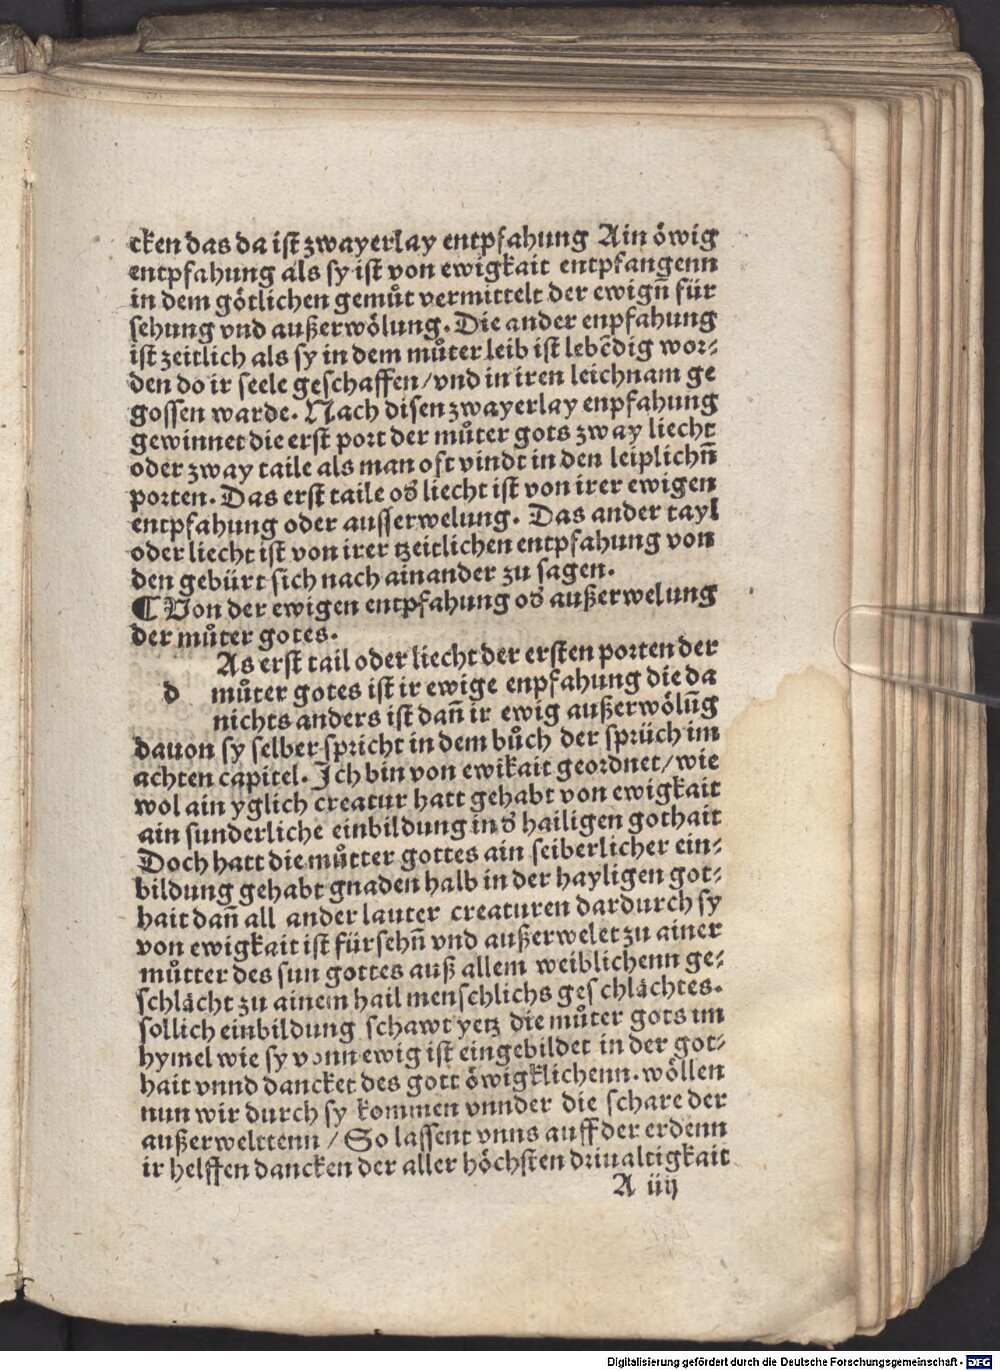 cken das da ist zwayerlay entpfahung Ain öwig
entpfahung als sy ist von ewigkait entpfangenn
in dem götlichen gemůt vermittelt der ewign̄ für
sehung vnd außerwölung. Die ander enpfahung
ist zeitlich als sy in dem můter leib ist lebēdig wor⸗
den do ir seele geschaffen/vnd in iren leichnam ge
gossen warde. Nach disen zwayerlay enpfahung
gewinnet die erst port der můter gots zway liecht
oder zway taile als man oft vindt in den leiplichn̄
porten. Das erst taile od' liecht ist von irer ewigen
entpfahung oder ausserwelung. Das ander tayl
oder liecht ist von irer tzeitlichen entpfahung von
den gebürt sich nach ainander zu sagen.
¶ Von der ewigen entpfahung od' außerwelung
der můter gotes.
As erst tail oder liecht der ersten porten der
d můter gotes ist ir ewige enpfahung die da
nichts anders ist dan̄ ir ewig außerwölūg
dauon sy selber spricht in dem bůch der sprüch im
achten capitel. Ich bin von ewikait geordnet/wie
wol ain yglich creatur hatt gehabt von ewigkait
ain sunderliche einbildung in d' hailigen gothait
Doch hatt die můtter gottes ain seiberlicher ein⸗
bildung gehabt gnaden halb in der hayligen got⸗
hait dan̄ all ander lauter creaturen dardurch sy
von ewigkait ist fürsehn̄ vnd außerwelet zu ainer
můtter des sun gottes auß allem weiblichenn ge⸗
schlächt zu ainem hail menschlichs geschlächtes.
sollich einbildung schawt yetz die můter gots im
hymel wie sy vonn ewig ist eingebildet in der got⸗
hait vnnd dancket des gott öwigklichenn. wöllen
nun wir durch sy kommen vnnder die schare der
außerwelttenn / So lassent vnns auff der erdenn
ir helffen dancken der aller höchsten driualtigkait
A iiij
Digitalisierung gefördert durch die Deutsche Forschungsgemeinschaft - DFG